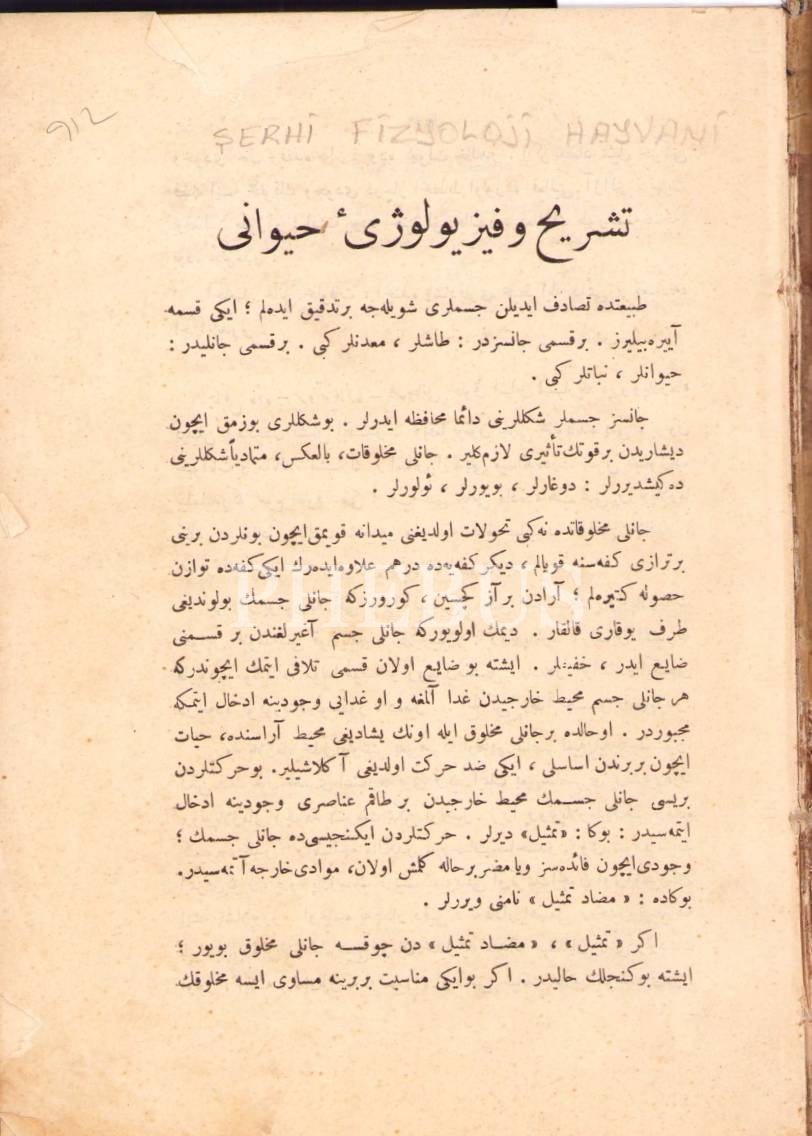 912
ŞERHİ FİZYOLOJİ HAYVANİ
تشریح و فیزیولوژیٔ حیوانی
طبیعتده تصادف ایدیلن جسملری شویله‌جه برتدقیق ایده‌لم ؛ ایکی قسمه
آییره‌بیلیرز . برقسمی جانسزدر : طاشلر ، معدنلر کبی . برقسمی جانلیدر :
حیوانلر ، نباتلر کبی .
جانسز جسملر شکللرینی دائما محافظه ایدرلر . بوشکللری بوزمق ایچون
دیشاریدن برقوتك تأثیری لازم‌کلیر . جانلی مخلوقات، بالعکس، متمادیاً شکللرینی
ده‌کیشدیررلر : دوغارلر ، بویورلر ، ئولورلر .
جانلی مخلوقاتده نه‌کبی تحولات اولدیغنی میدانه قویمق‌ایچون بونلردن برینی
برترازی کفه‌سنه قویالم ، دیکر کفه‌یه‌ده درهم علاوه‌ایده‌رك ایکی‌کفه‌ده توازن
حصوله کتیره‌لم ؛ آرادن برآز کچسین ، کورورزکه جانلی جسمك بولوندیغی
طرف یوقاری قالقار . دیمك اولویورکه جانلی جسم آغیرلغندن بر قسمنی
ضایع ایدر ، خفیفلر . ایشته بو ضایع اولان قسمی تلافی ایتمك ایچوندرکه
هرجانلی جسم محیط خارجیدن غدا آلمغه و او غدایی وجودینه ادخال ایتمکه
مجبوردر . اوحالده برجانلی مخلوق ایله اونك یشادیغی محیط آراسنده، حیات
ایچون بربرندن اساسلی ، ایکی ضد حرکت اولدیغی آکلاشیلیر. بوحرکتلردن
بریسی جانلی جسمك محیط خارجیدن بر طاقم عناصری وجودینه ادخال
ایتمه‌سیدر : بوکا : «تمثیل» دیرلر . حرکتلردن ایکنجیسی‌ده جانلی جسمك ؛
وجودی‌ایچون فائده‌سز ویامضر برحاله کلمش اولان، موادی‌خارجه آتمه‌سیدر.
بوکاده : « مضاد تمثیل » نامنی ویررلر .
اکر « تمثیل » ، « مضاد تمثیل » دن چوقسه جانلی مخلوق بویور ؛
ایشته بوکنجلك حالیدر . اکر بوایکی مناسبت بربرینه مساوی ایسه مخلوقك
PHEBUN